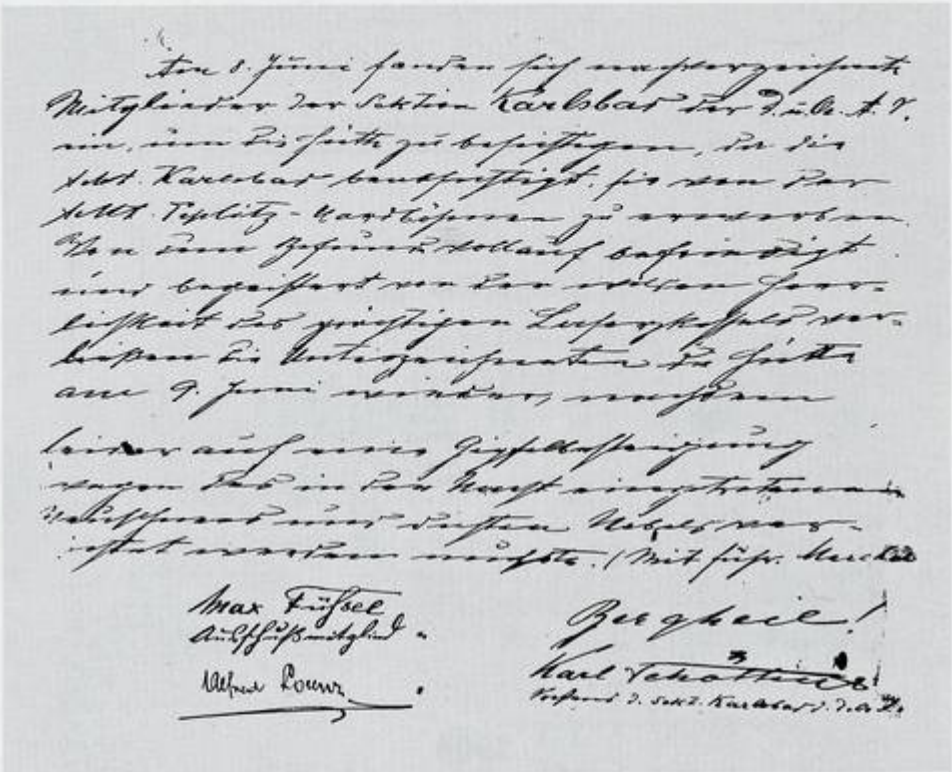 Am 8. Juni fanden sich nachverzeichnete
Mitglieder der Sektion Karlsbad des D. u. Oe. A. V.
ein, um die Hütte zu besichtigen, da die
Sekt. Karlsbad beabsichtigt, sie von der
Sekt. Teplitz-Nordböhmen zu erwerben.
Von dem Befund vollauf befriedigt
und begeistert von der wilden Herr-
lichkeit des prächtigen Laserzkessels ver-
ließen die Unterzeichneten die Hütte
am 9. Juni wieder, nachdem
leider auf eine Gipfelbesteigung
wegen des in der Nacht eingetretenen
Neuschnees und dichten Nebels ver-
zichtet werden mußte. (Mit Führ.
Max Fühsel
Ausschußmitglied
Alfred Lorenz
Bergheil!
Karl
Vorstand d. Sekt. Karlsbad d. D. u. Oe. A. V.